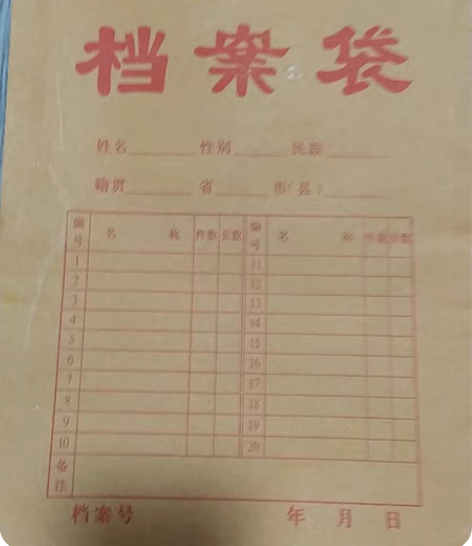 档案袋
姓名 性别 民族
籍贯 省 市(县)
编号 名 称 件数 页数 编号 名 称 件数 页数
1 11
2 12
3 13
4 14
5 15
6 16
7 17
8 18
9 19
10 20
备注
档案号 年 月 日